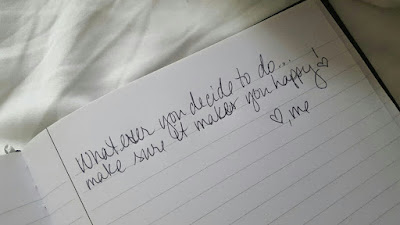 Whatever you decide to do...
make sure it makes you happy! ♡
♡, me